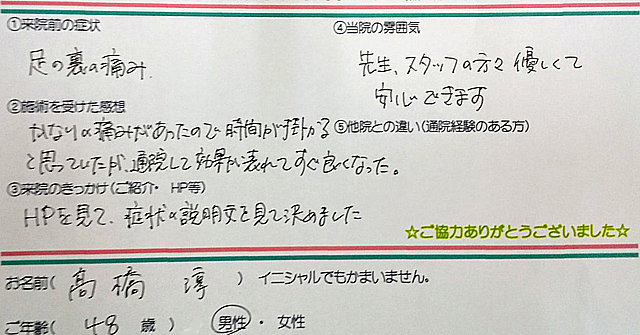 ①来院前の症状
足の裏の痛み.
②施術を受けた感想
かなりの痛みがあったので時間が掛かる
と思っていたが、通院して効果が表れてすぐ良くなった。
③来院のきっかけ(ご紹介・ HP等)
HPを見て、症状の説明文を見て決めました
④当院の雰囲気
先生、スタッフの方々優しくて
安心できます
⑤他院との違い(通院経験のある方)
☆ご協力ありがとうございました☆
お名前( 高橋 淳 ) イニシャルでもかまいません。
ご年齢( 48 歳 ) 男性 ・ 女性